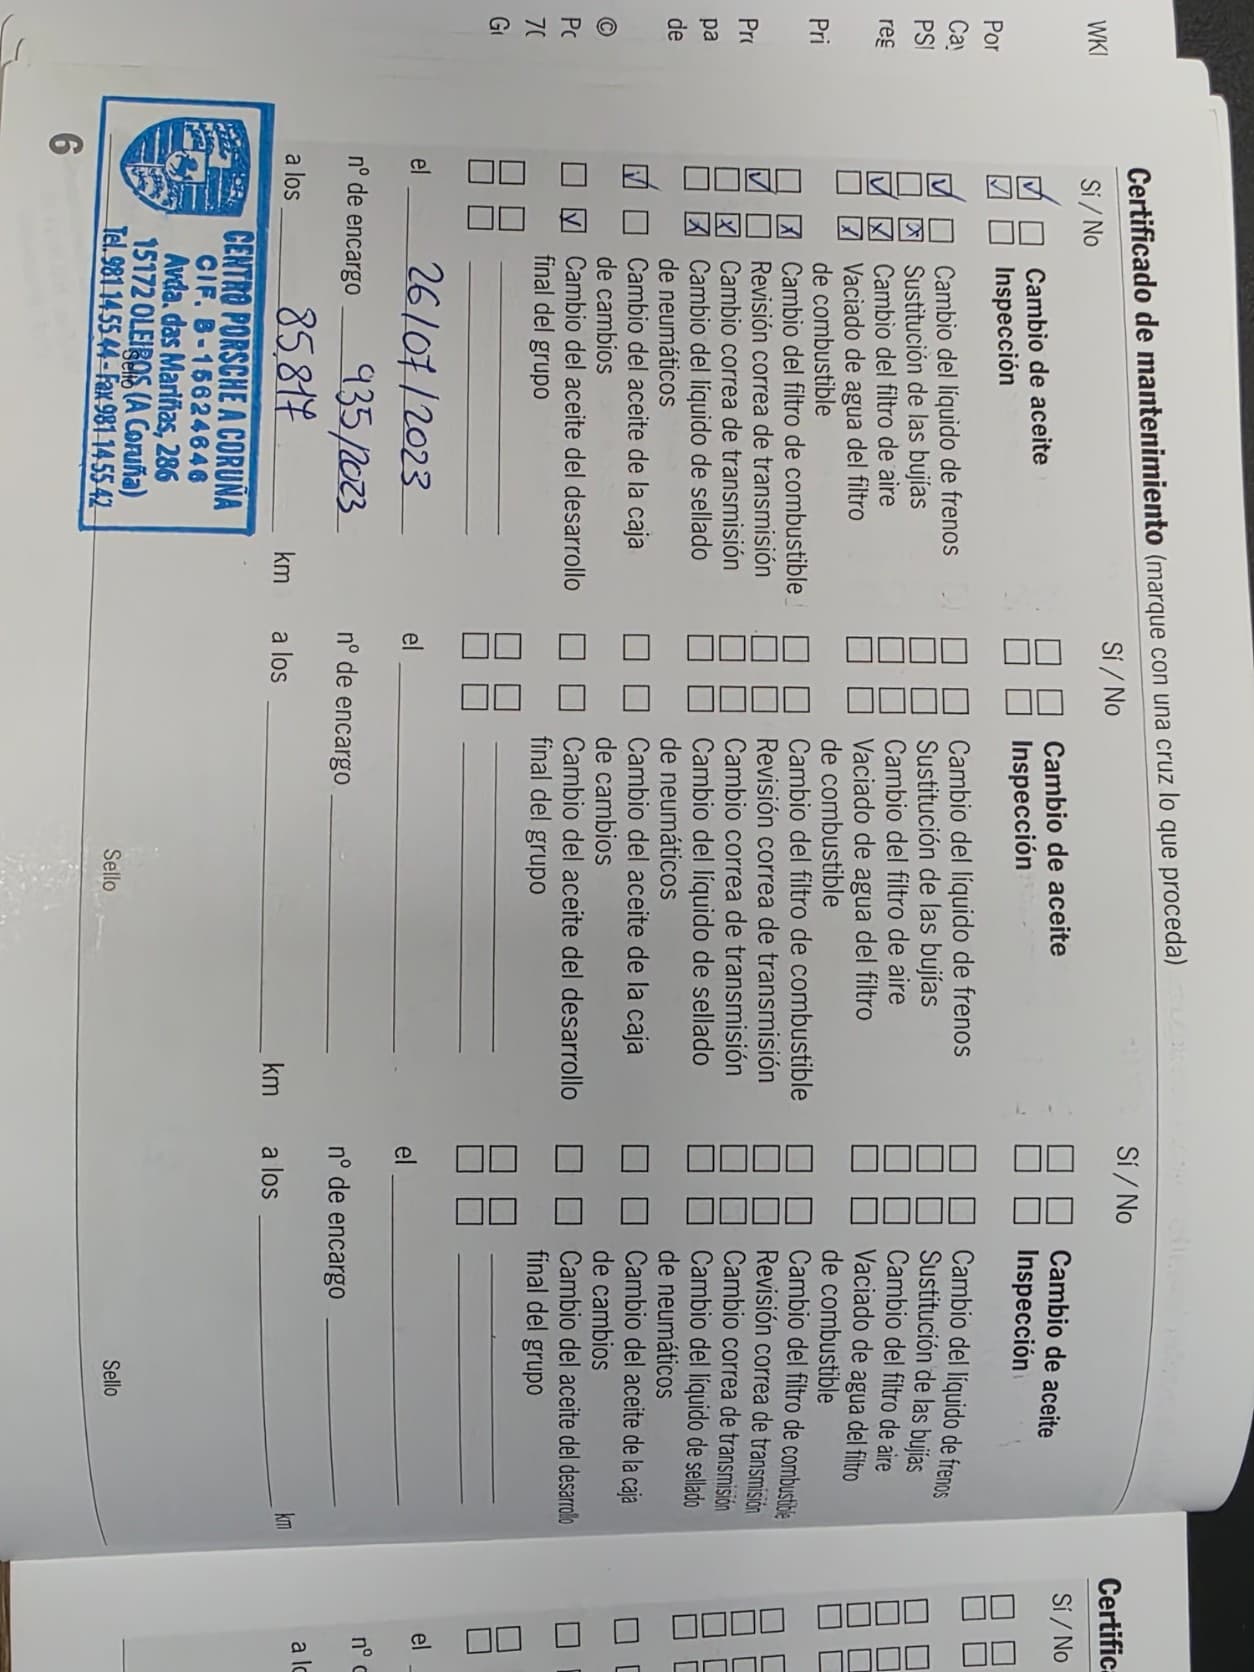 WKI
Por
PSI
reg
Pri
pa
de
©
Certificado de mantenimiento (marque con una cruz lo que proceda)
Sí / No
Cambio de aceite
Inspección
Cambio del líquido de frenos
Sustitución de las bujías
Cambio del filtro de aire
Vaciado de agua del filtro
de combustible
Cambio del filtro de combustible
Revisión correa de transmisión
Cambio correa de transmisión
Cambio del líquido de sellado
de neumáticos
Cambio del aceite de la caja
de cambios
Cambio del aceite del desarrollo
final del grupo
el 26/07/2023
nº de encargo 935/2023
a los 85.817 km
CENTRO PORSCHE A CORUÑA
CIF. B-15624646
Avda. das Mariñas, 286
15172 OLEIROS (A Coruña)
Tel. 981 14 55 44 - Fax 981 14 55 42
Sello
6
Sí / No
Cambio de aceite
Inspección
Cambio del líquido de frenos
Sustitución de las bujías
Cambio del filtro de aire
Vaciado de agua del filtro
de combustible
Cambio del filtro de combustible
Revisión correa de transmisión
Cambio correa de transmisión
Cambio del líquido de sellado
de neumáticos
Cambio del aceite de la caja
de cambios
Cambio del aceite del desarrollo
final del grupo
el
nº de encargo
a los km
Sello
Sí / No
Cambio de aceite
Inspección
Cambio del líquido de frenos
Sustitución de las bujías
Cambio del filtro de aire
Vaciado de agua del filtro
de combustible
Cambio del filtro de combustible
Revisión correa de transmisión
Cambio correa de transmisión
Cambio del líquido de sellado
de neumáticos
Cambio del aceite de la caja
de cambios
Cambio del aceite del desarrollo
final del grupo
el
nº de encargo
a los km
Sello
Certific
Sí / No
el
nº
a lo